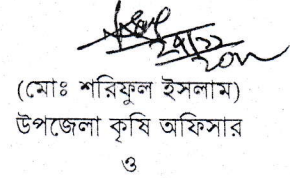 (মোঃ শরিফুল ইসলাম)
উপজেলা কৃষি অফিসার
ও